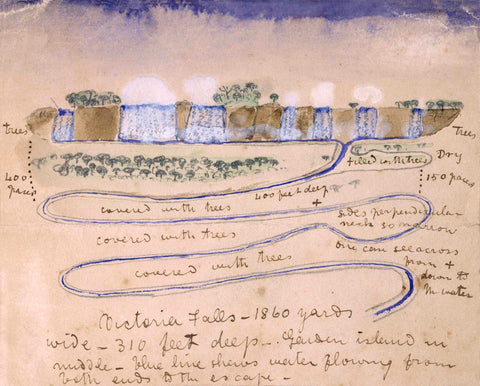 trees
trees
filled with trees
Dry
400
paces
150 paces
400 feet deep
covered with trees
+
sides perpendicular
neck so narrow
covered with trees
one can see across
from +
down to
water
covered with trees
Victoria Falls - 1860 yards
wide - 310 feet deep - Garden island in
middle - blue line shews water flowing from
both ends to the escape -